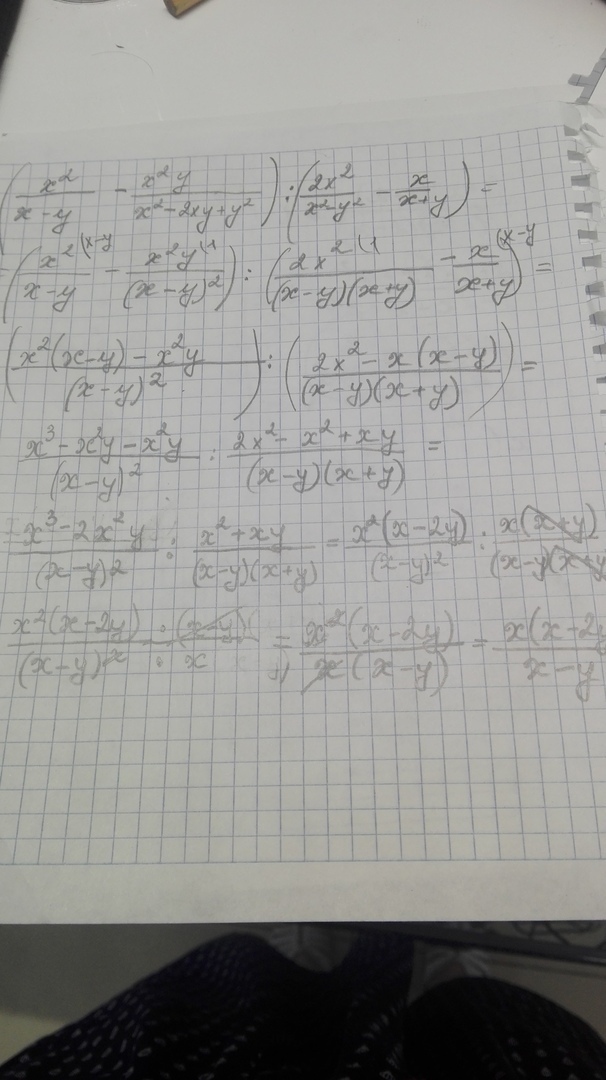 (x²/(x-y) - x²y/(x²-2xy+y²)) : (2x²/(x²-y²) - x/(x+y)) =
= (x²(x-y/(x-y) - x²y(1/(x-y)²) : (2x²(1/((x-y)(x+y)) - x(x-y/(x+y)) =
((x²(x-y)-x²y)/(x-y)²) : ((2x²-x(x-y))/((x-y)(x+y))) =
(x³-x²y-x²y)/(x-y)² : (2x²-x²+xy)/((x-y)(x+y)) =
(x³-2x²y)/(x-y)² : (x²+xy)/((x-y)(x+y)) = x²(x-2y)/(x-y)² : x(x+y)/((x-y)(x+y
x²(x-2y)/(x-y)² : (x-y)/x = x²(x-2y)/(x(x-y)) = x(x-2y/(x-y)